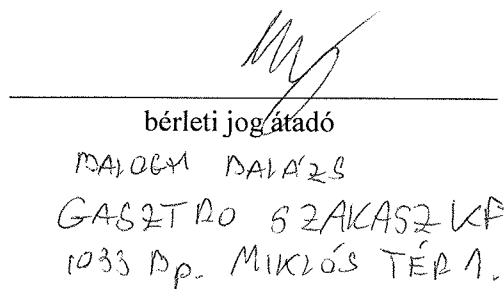 bérleti jog átadó
BALOGH BALÁZS
GASZTRO SZAKASZ KF
1033 Bp. MIKLÓS TÉR 1.